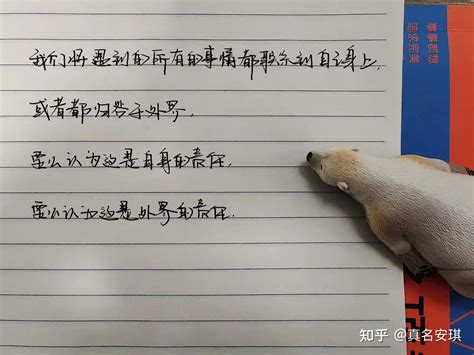 我们将遇到的所有的事情都联系到自身上,
或者都归咎于外界.
要么认为这是自身的责任.
要么认为这是外界的责任.
追求完美
知乎 @真名安琪